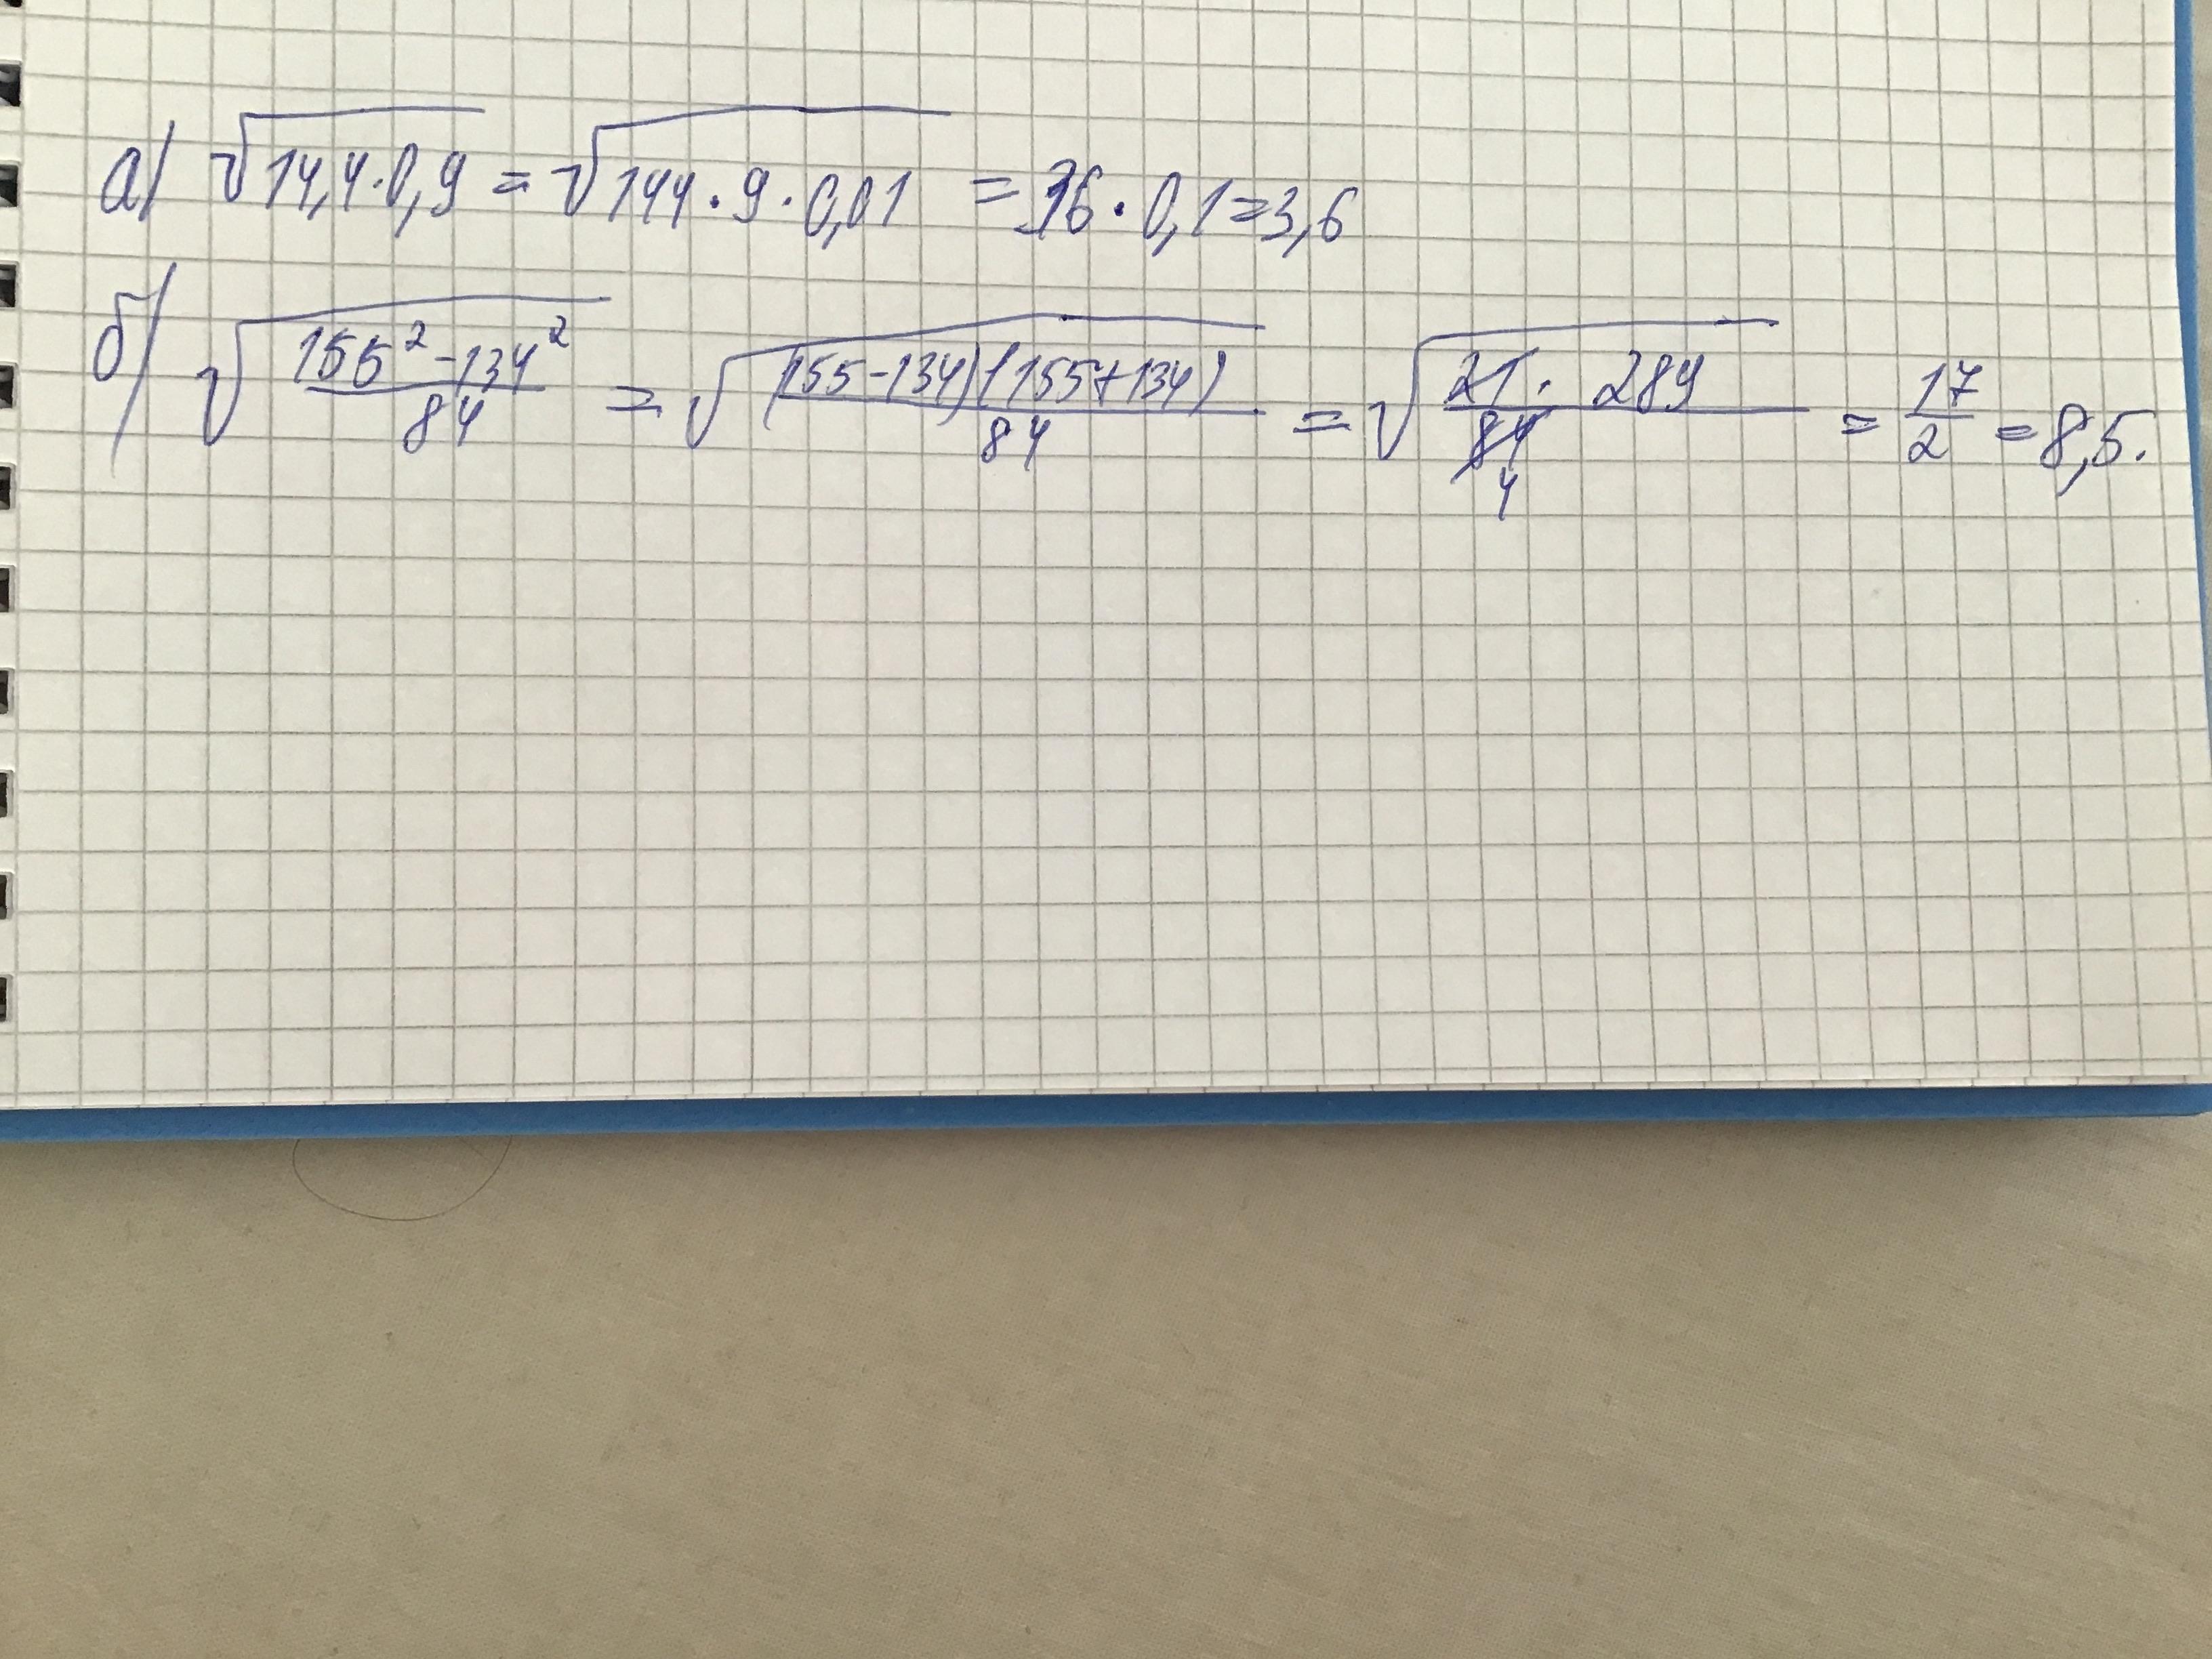 а) √14,4·0,9 = √144·9·0,01 = 36·0,1=3,6
б) √(155²-134²)/84 = √((155-134)(155+134))/84 = √(21·289)/84 4 = 17/2 = 8,5.